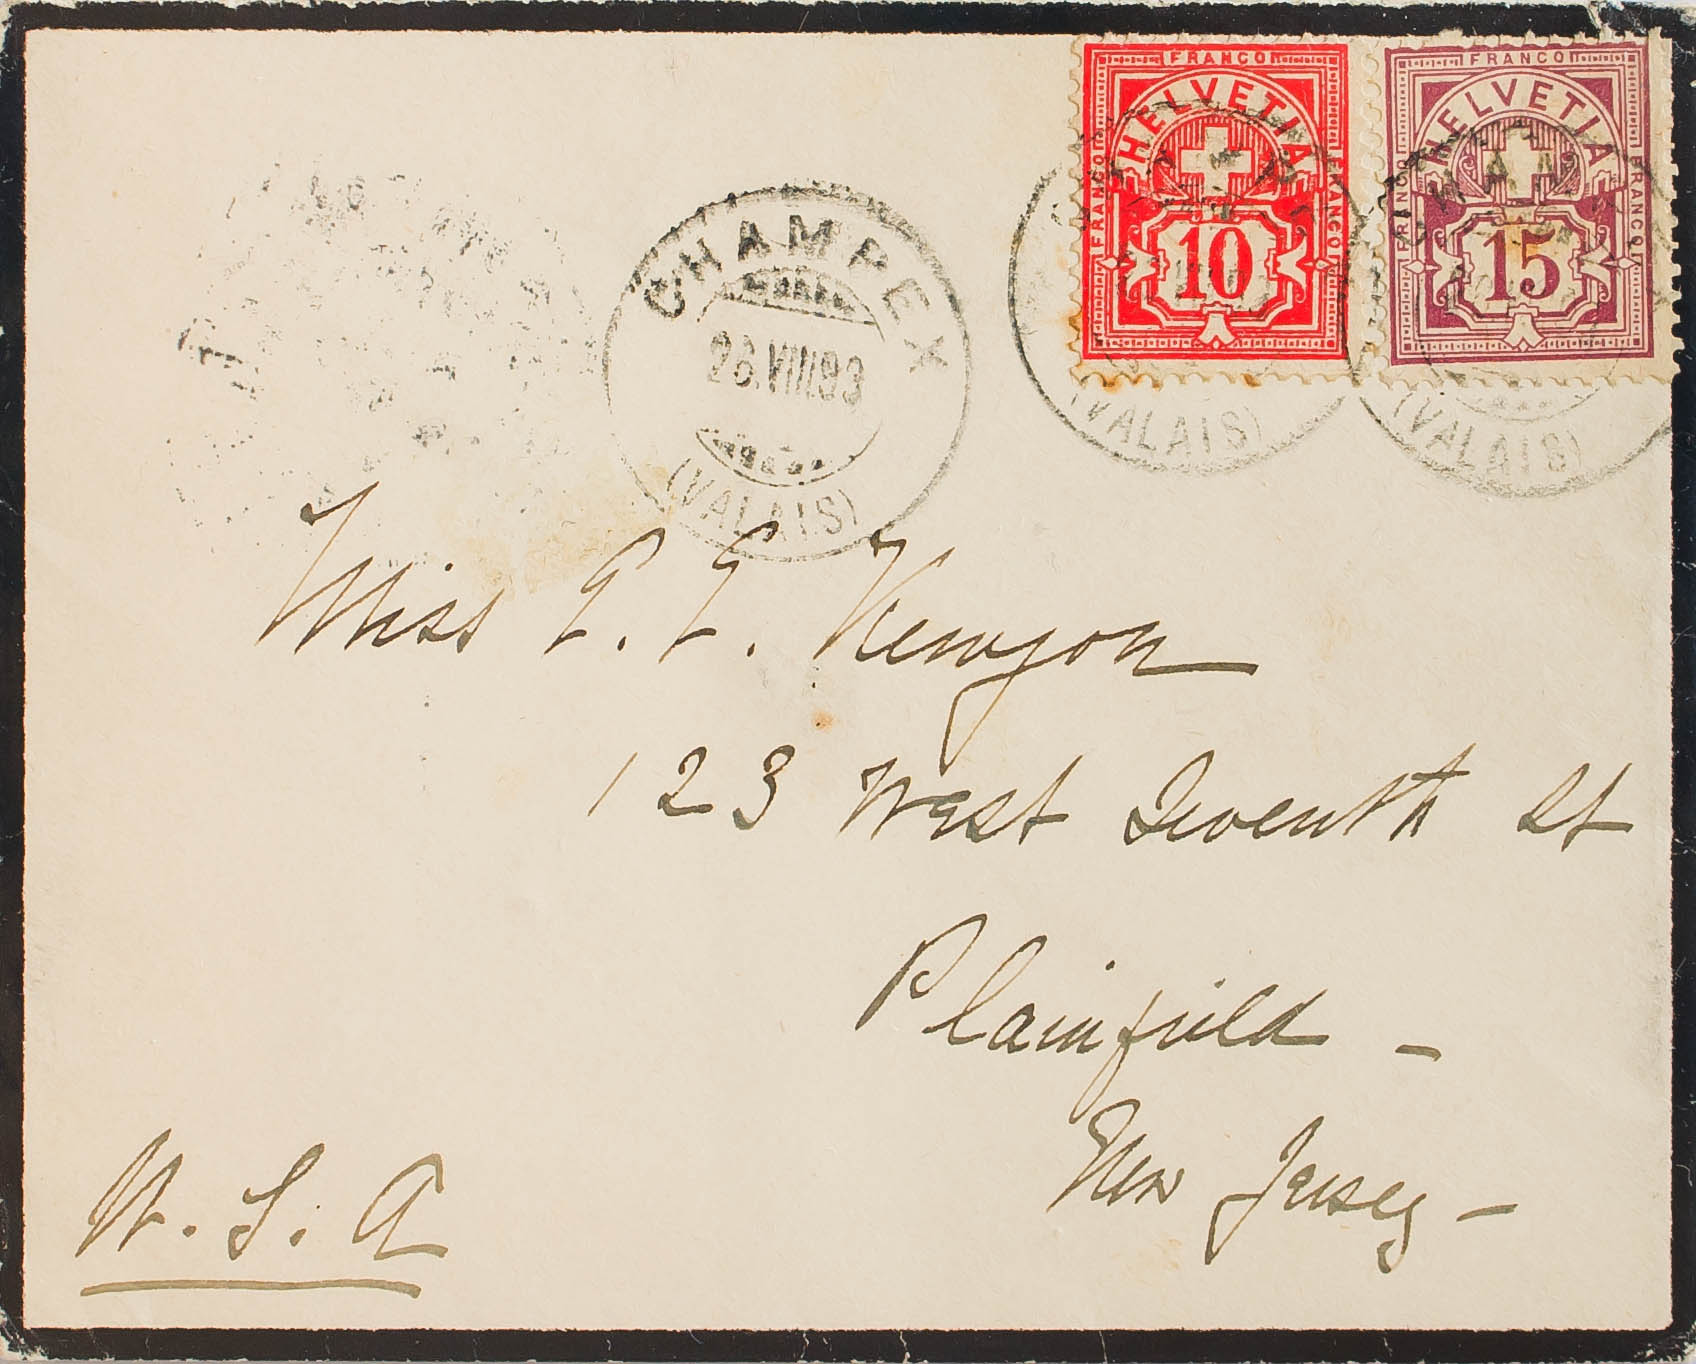 FRANCO
HELVETIA
FRANCO
10
FRANCO
FRANCO
HELVETIA
FRANCO
15
FRANCO
CHAMPEX
26.VIII.93
(VALAIS)
(VALAIS)
(VALAIS)
Miss E. E. Kenyon
123 West Seventh St
Plainfield -
New Jersey -
U. S. A